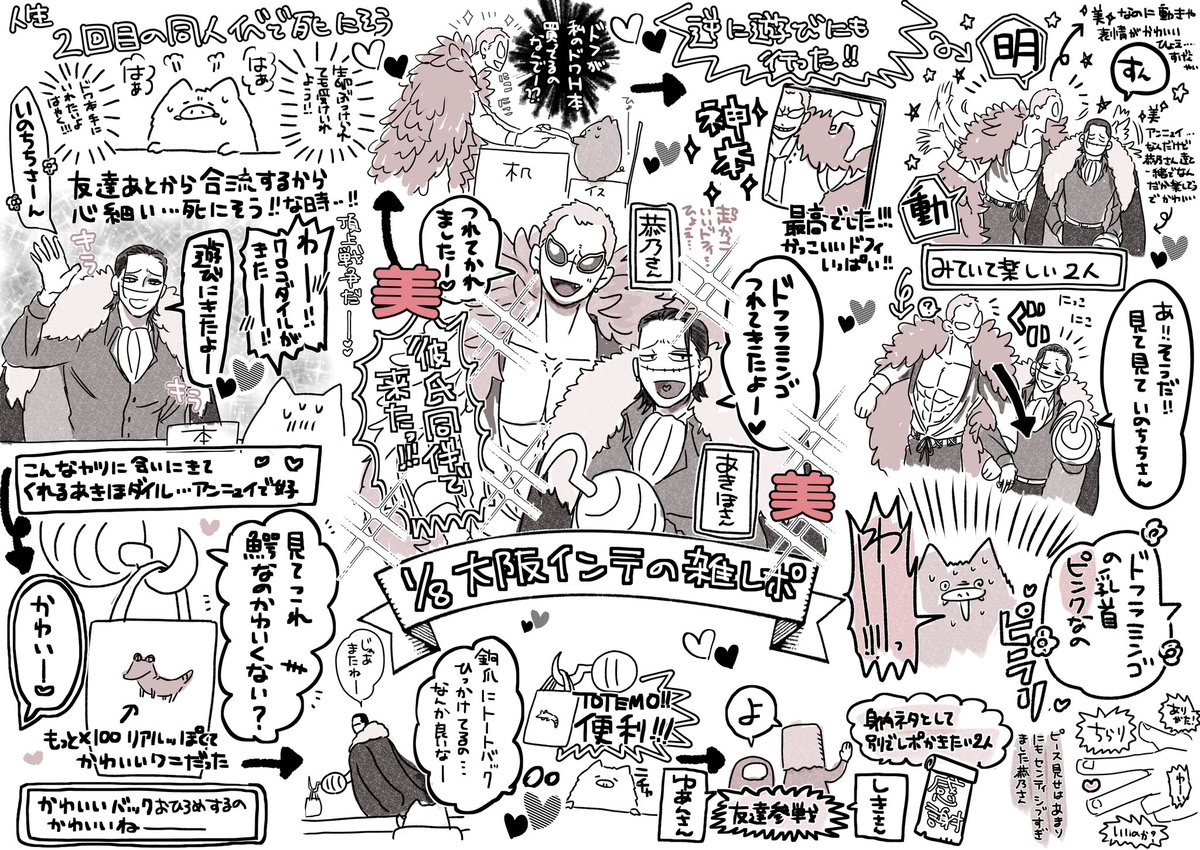 人生
2回目の同人イベで死にそう
はぁ
はぁ
いのちちさーん
友達あとから合流するから
心細い…死にそう!!な時…!!
キラ
キラ
遊びに
きたよー
わー!!
クロコダイルが
きたーー!!!
本
こんなヤツに会いにきて
くれるあきほダイル…アンニュイで好
見てこれ
鰐なの
かわいくない?
かわいー
もっと×100 リアルッぽくて
かわいいワニだった
かわいいバックおひろめするの
かわいいね———
ドフが
私のドワク本
買ってるの
なんで!?
机
イス
頂上戦争だ
美
つれてかれ
ましたー
彼氏同伴で
来たっ!!!
恭乃さん
ドフラミンゴ
つれてきたよー
あきほさん
美
1/8 大阪インテの雑レポ
逆に遊びにも
行った!!
神本
最高でした!!!
かっこいいドフィ
いっぱい!!
超かっこ
いいドフィ
明
動
すん
美なのに動きや
表情がかわいい
美
アンニュイ…
なんだけど
みていて楽しい2人
にっこ
にこ
あ!!そうだ!!
見て見ていのちちさん
ドフラミンゴ
の乳首
ピンクなの
わ
っ!!!
ピラリ
じゃあ
またねー
鉤爪にトートバック
ひっかけてるの…
なんか良いなー
TOTEMO!!
便利!!!
ニチャ
よ
ゆあさん
友達参戦
しきさん
身内ネタとして
別でレポかきたい2人
感謝
ピース見せはあまり
にもセンシティブすぎ
ました恭乃さん
ちらり
ありがた!
いいのか?